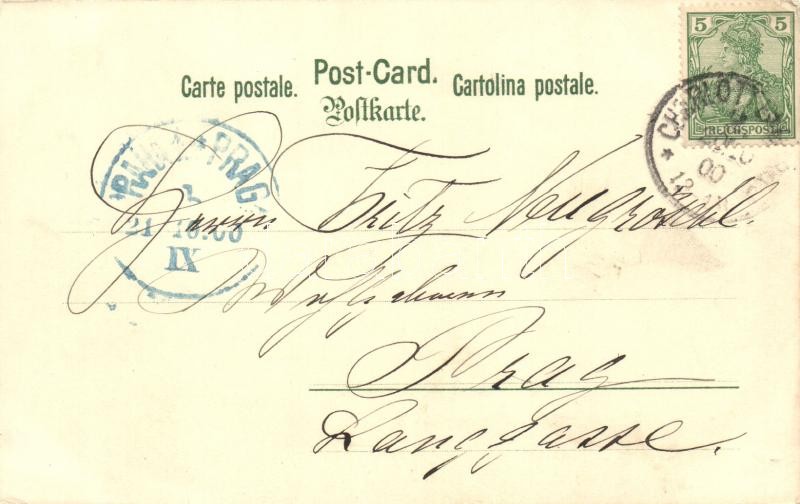 5 5
REICHSPOST
Carte postale. Post-Card. Cartolina postale.
Postkarte.
CHARLOTT
00
12
PRAG
21 10.00
IX
Herrn Fritz Neugröschl.
Prag
Langgasse